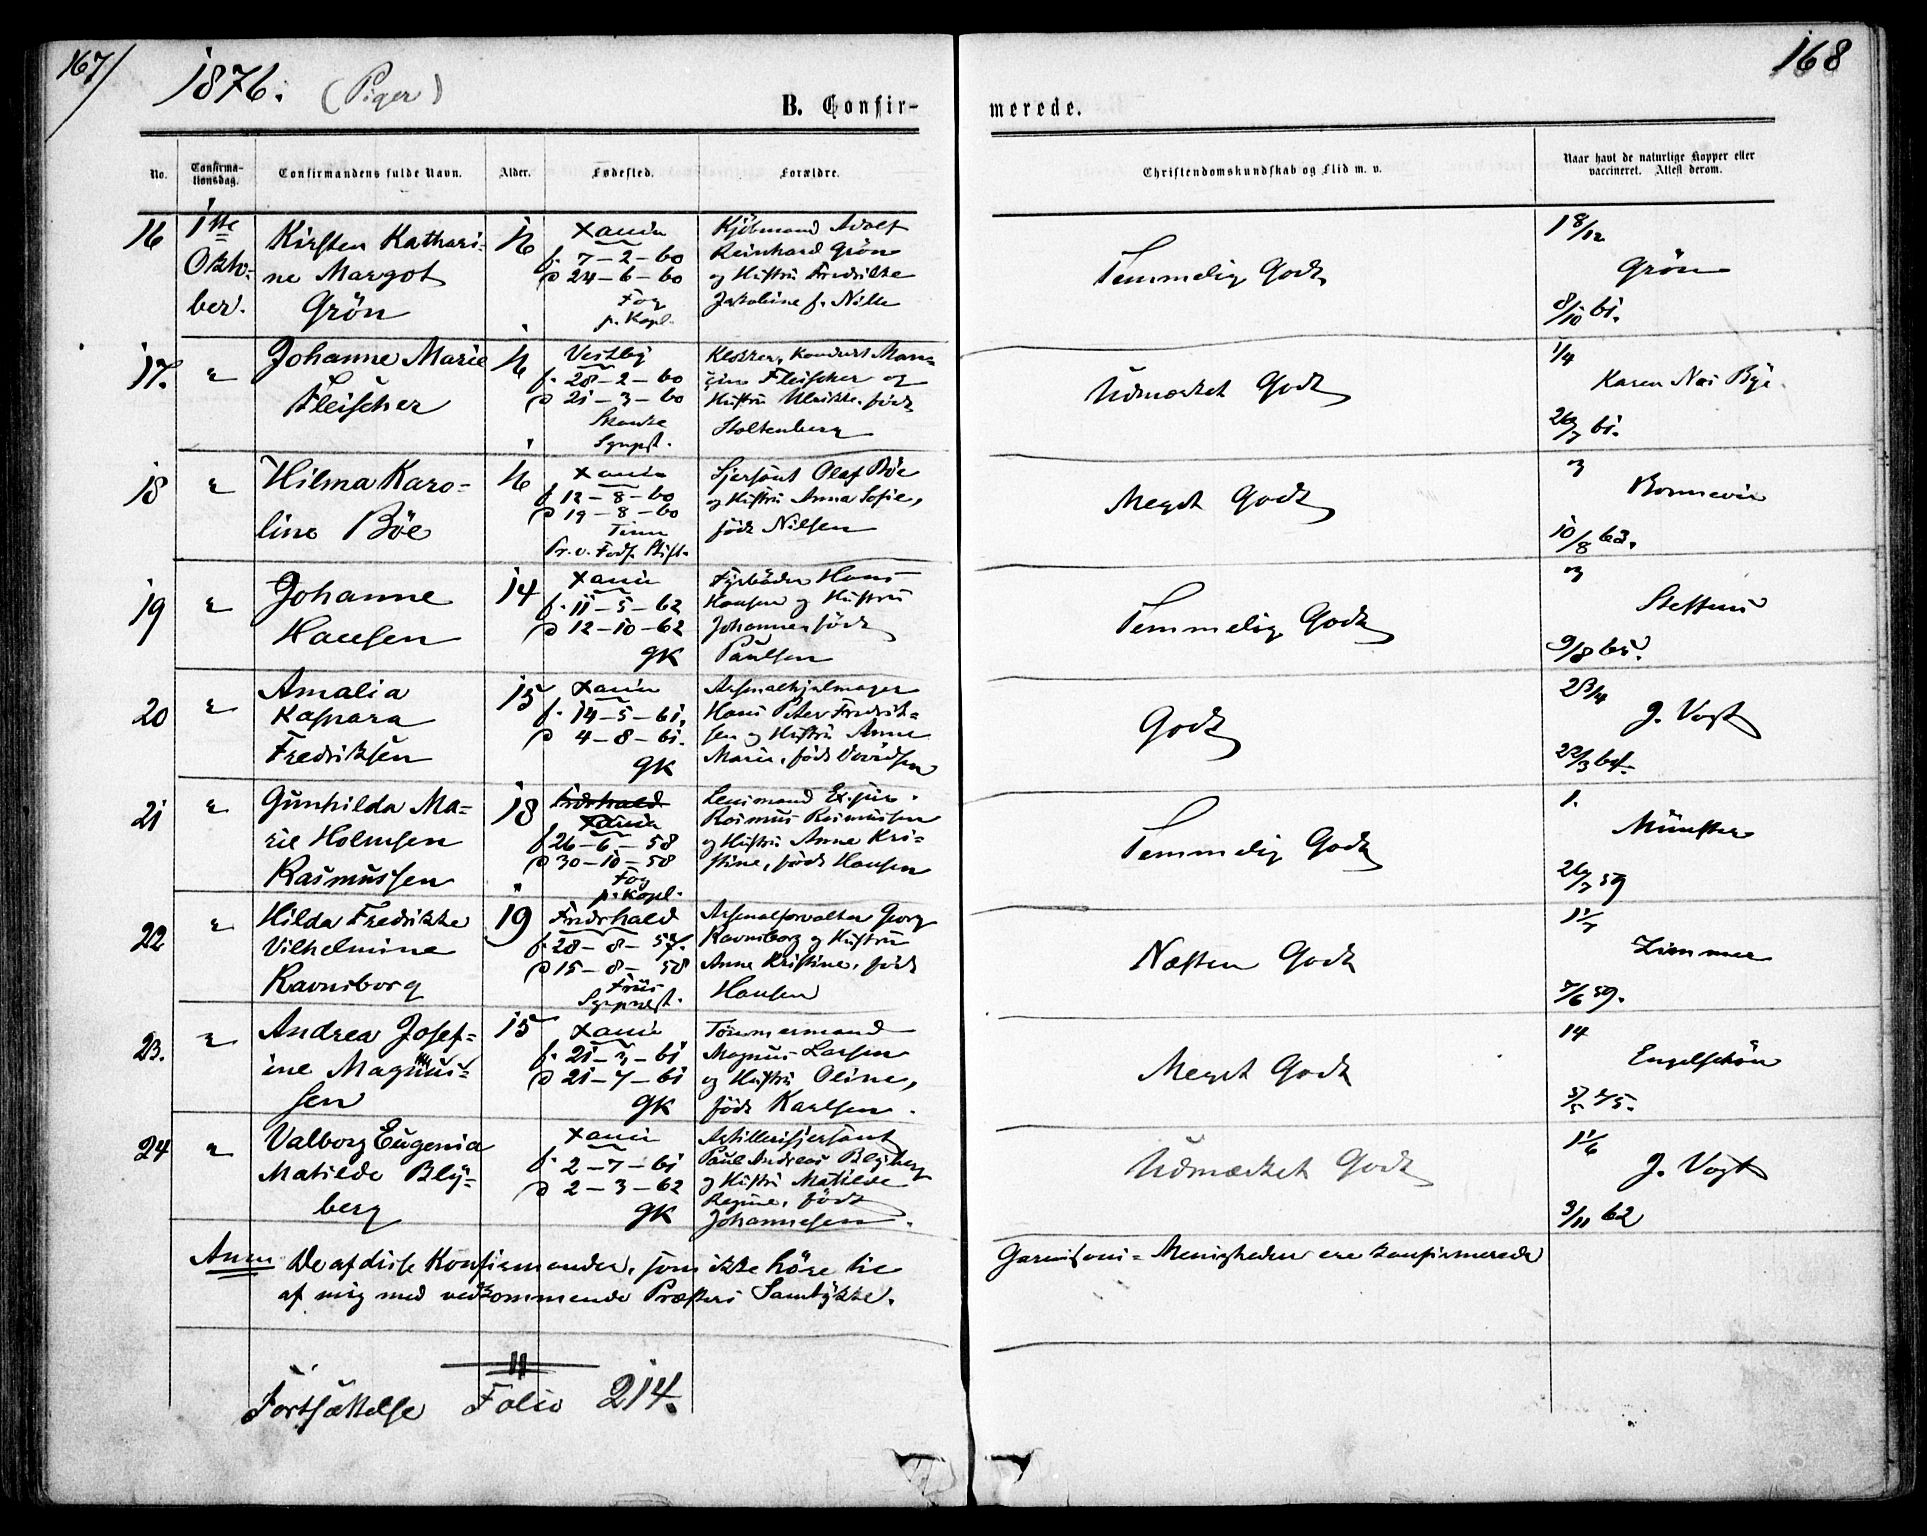 167/
168
1876. (Piger)
B. Confir-
merede.
No.
Confirma-
tionsdag.
Confirmandens fulde Navn.
Alder.
Fødested.
Forældre.
Christendomskundskab og Flid m. v.
Naar havt de naturlige Kopper eller
vaccineret. Attest derom.
16
1ste
Okto-
ber.
Kirsten Kathari-
ne Margot
Grön
16
Xania
f. 7-2-60
d 24-6-60
Fog
p. Kapl.
Kjöbmand Adolf
Reinhard Grön
og Hustru Fredrikke
Jakobine f.
Temmelig Godt
18/12
Grön
8/10 61.
17.
"
Johanne Marie
Fleischer
16
Vestby
f. 28-2-60
d 21-3-60
Sognpst.
Klokker, Kandidat
Fleischer og
Hustru Ulrikke, född
Stoltenberg
Udmærket Godt
1/4
Karen
26/7 61.
18
"
Hilma Karo-
line Böe
16
Xania
f 12-8-60
d 19-8-60
Pr. v. Föds. Stift.
Sjersant Olaf Böe
og Hustru Anna Sofie,
född Nilsen
Meget Godt
Bonnevie
10/8 63.
19
"
Johanne
Hansen
14
Xania
f. 11-5-62
d 12-10-62
GK
Fyrböder Hans
Hansen og Hustru
Johanne, född
Paulsen
Temmelig Godt
Steffens
20
"
Amalia
Kaspara
Fredriksen
15
Xania
f. 14-5-61.
d 4-8-61.
GK
Hans Peter Fredrik-
sen og Hustru Anne
Marie, född
Godt
23/4
J. Vogt
22/3 64.
21
"
Gunhilda Ma-
rie Holmsen
Rasmussen
18
Xania
f 26-6-58
d 30-10-58
Fog
p. Kapl.
Lensmand
Rasmus Rasmussen
og Hustru Anne Kri-
stine, född Hansen
Temmelig Godt
1.
Münster
26/7 59
22
"
Hilda Fredrikke
Vilhelmine
Ravnsborg
19
Fredrhald
f. 28-8-57.
d 15-8-58
Friis
Sognpræst.
Arsenalforvalter Georg
Ravnsborg og Hustru
Anne Kristine, född
Hansen
Næsten Godt
Zimmer
7/6 59.
23.
"
Andrea Josef-
ine Magnus-
sen
15
Xania
f. 21-3-61
d 21-7-61
GK
Tömmermand
Magnus Larsen
og Hustru Oline,
född Karlsen.
Meget Godt
14
Engelschön
5/5 75.
24
"
Valborg Eugenia
Matilde Bly-
berg
Xania
f. 2-7-61
d 2-3-62
GK
Artillerisjersant
Paul Andreas Blyberg
og Hustru Matilde
Regine, född
Johannesen.
Udmærket Godt
11/6
J. Vogt
3/11 62
Anm De af disse Konfirmander, som ikke höre til Garnisons-Menigheden ere konfirmerede
af mig med vedkommende Præsters Samtykke.
Fortsættelse Folio 214.